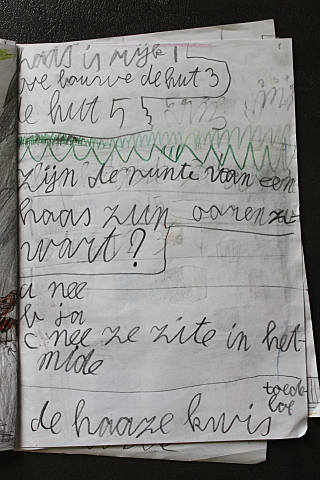 haas is mijk 1
we bouwe de hut 3
e hut 5
zijn de punte van een
haas zun oaren zw
wart?
a nee
b ja
c nee ze zite in het
mide
toede
loe
de haaze kwis